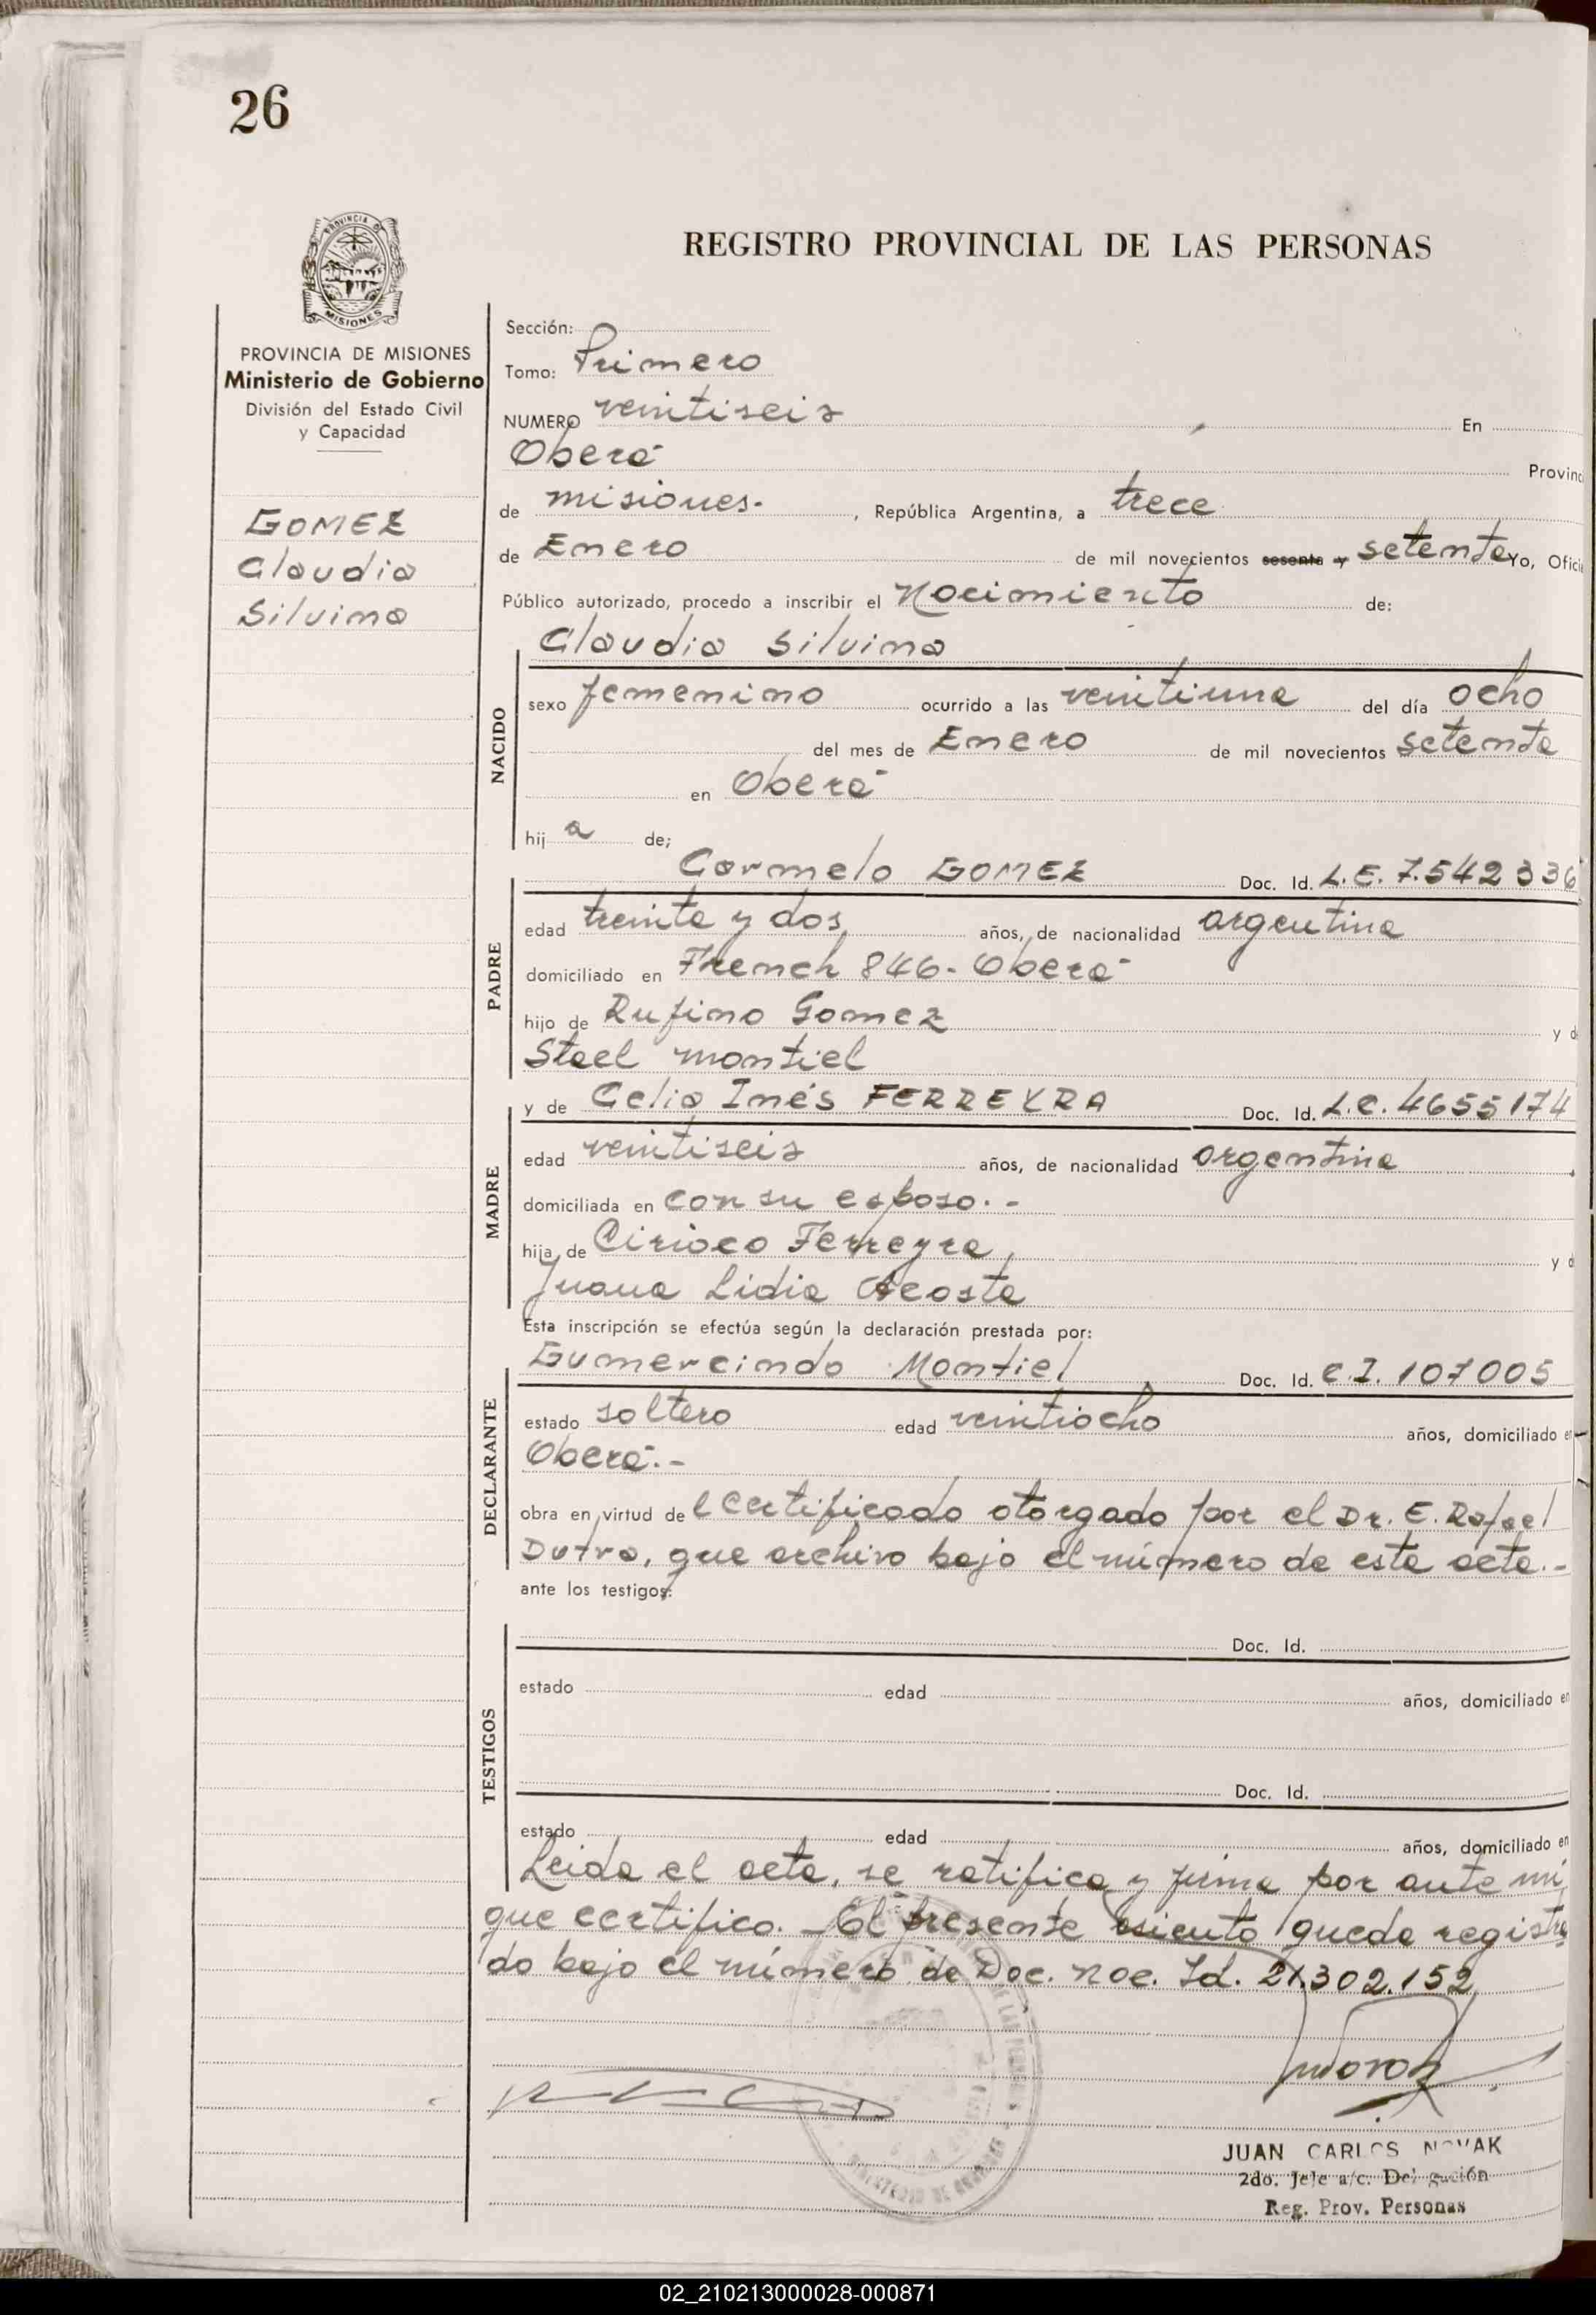 26
PROVINCIA DE
MISIONES
REGISTRO PROVINCIAL DE LAS PERSONAS
PROVINCIA DE MISIONES
Ministerio de Gobierno
División del Estado Civil
y Capacidad
GOMEZ
Claudia
Silvina
Sección:
Tomo: Primero
NUMERO veintiseis En
Oberá Provinc
de misiones. , República Argentina, a trece
de Enero de mil novecientos sesenta y setenta Yo, Ofici
Público autorizado, procedo a inscribir el Nacimiento de:
Claudia Silvina
NACIDO
sexo femenino ocurrido a las veintiuna del día ocho
del mes de Enero de mil novecientos setenta
en Oberá
hij a de;
Carmelo GOMEZ Doc. Id. L.E. 7.542.336
PADRE
edad treinta y dos años, de nacionalidad argentina
domiciliado en French 846- Oberá
hijo de Rufino Gomez y d
Stael Montiel
y de Celia Inés FERREYRA Doc. Id. L.C. 4655174
MADRE
edad veintiseis años, de nacionalidad argentina
domiciliada en con su esposo.-
hija de Ciriaco Ferreyra y d
Juana Lidia Acosta
Esta inscripción se efectúa según la declaración prestada por:
Gumercindo Montiel Doc. Id. C.I. 107005
DECLARANTE
estado soltero edad veintiocho años, domiciliado en
Oberá.-
obra en virtud de l certificado otorgado por el Dr. E. Rafael
Dutra, que archivo bajo el número de esta acta.-
ante los testigos:
TESTIGOS
Doc. Id.
estado edad años, domiciliado en
Doc. Id.
estado edad años, domiciliado en
Leida el acta, se ratifica y firma por ante mi,
que certifico.- El presente asiento queda registra
do bajo el número de Doc. Nac. Id. 21.302.152
JUAN CARLOS NOVAK
2do. Jefe a/c. Delegación
Reg. Prov. Personas
02_210213000028-000871